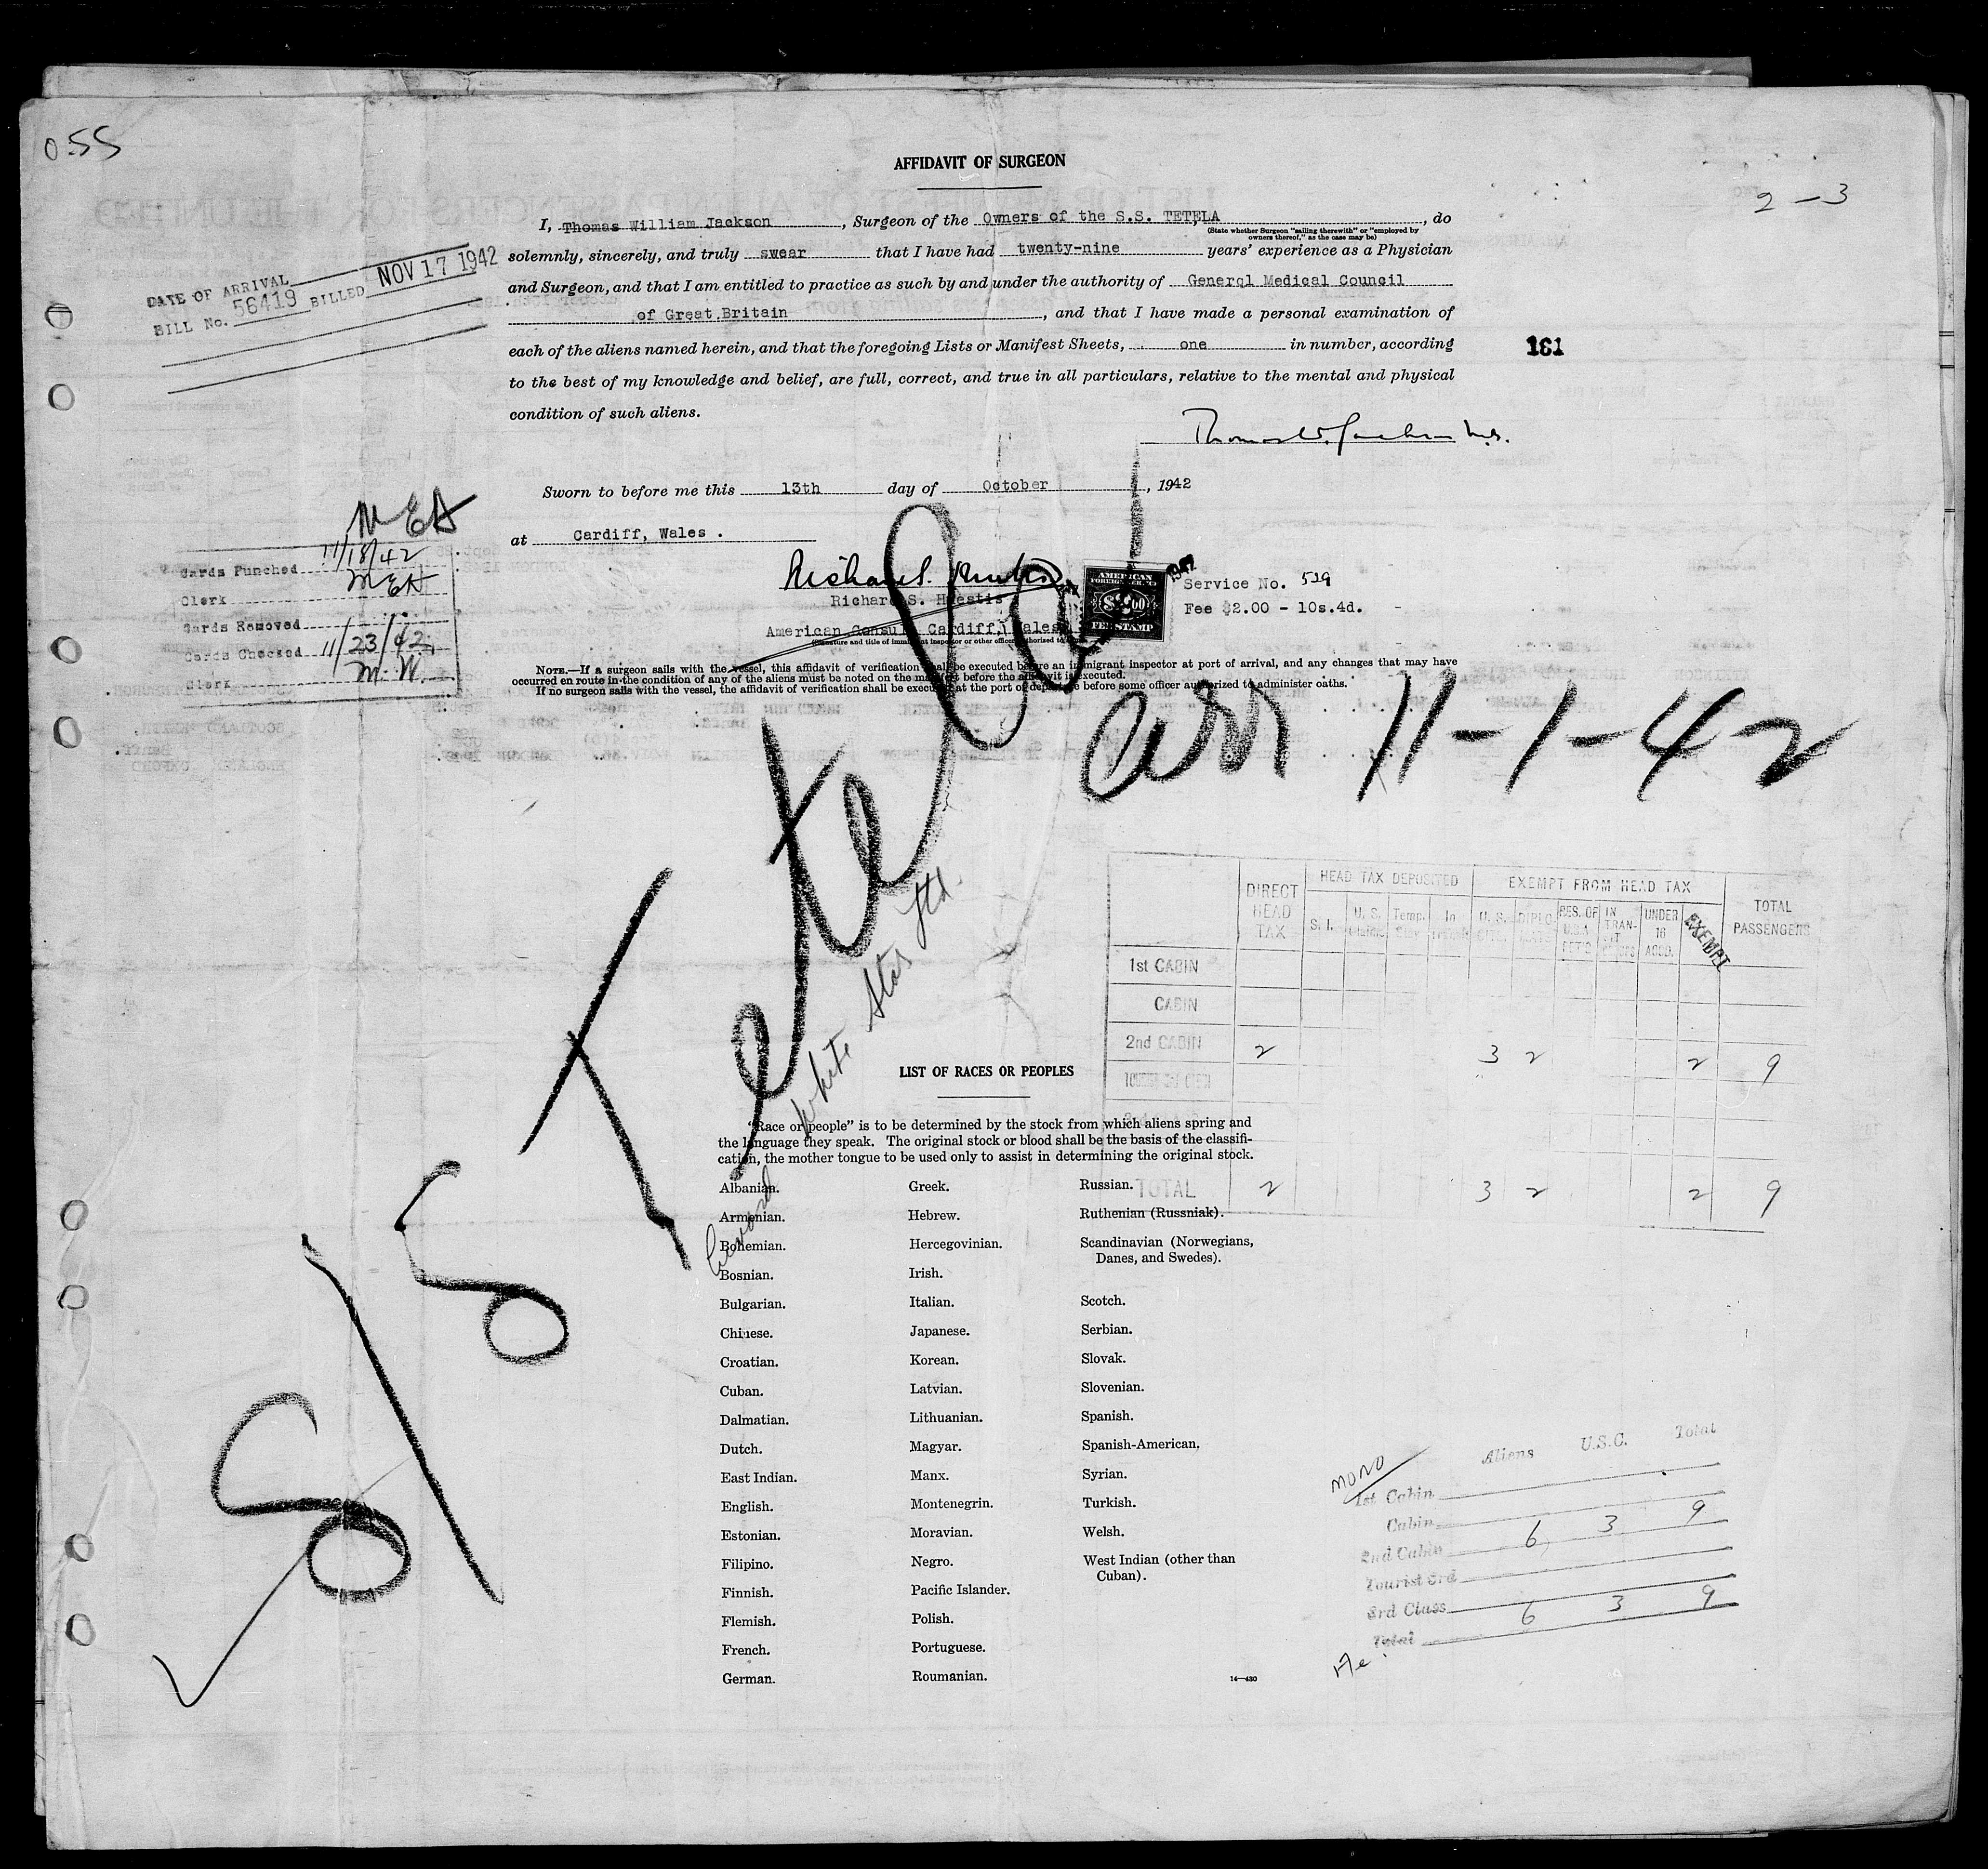 055
AFFIDAVIT OF SURGEON
2-3
I, Thomas William Jackson, Surgeon of the Owners of the S.S. TETELA, do
(State whether Surgeon "sailing therewith" or "employed by
owners thereof," as the case may be)
solemnly, sincerely, and truly swear that I have had twenty-nine years' experience as a Physician
and Surgeon, and that I am entitled to practice as such by and under the authority of Generql Medical Council
of Great Britain, and that I have made a personal examination of
each of the aliens named herein, and that the foregoing Lists or Manifest Sheets, one in number, according
to the best of my knowledge and belief, are full, correct, and true in all particulars, relative to the mental and physical
condition of such aliens.
DATE OF ARRIVAL
BILL No. 56419 BILLED NOV 17 1942
161
Thomas W. Jackson M.B.
Sworn to before me this 13th day of October, 1942
at Cardiff, Wales .
MEA
Cards Punched 11/18/42
Clerk MEA
Cards Removed
Cards Checked 11/23/42
Clerk M.W.
Richard S. Huestis
American Consul Cardiff, Wales
AMERICAN
FOREIGN SERVICE
$2.00
FEE STAMP
1942
Service No. 529
Fee $2.00 - 10s.4d.
NOTE.—If a surgeon sails with the vessel, this affidavit of verification shall be executed before an immigrant inspector at port of arrival, and any changes that may have
occurred en route in the condition of any of the aliens must be noted on the manifest before the affidavit is executed.
If no surgeon sails with the vessel, the affidavit of verification shall be executed at the port of departure before some officer authorized to administer oaths.
S/S Tetela
arr 11-1-42
Cunard White Star Ltd.
DIRECT HEAD TAX
HEAD TAX DEPOSITED
EXEMPT FROM HEAD TAX
TOTAL PASSENGERS
S. I.
U. S.
Temp.
In
U. S.
DIPLO
RES. OF U.S.A.
IN TRAN-
UNDER 16 ACCD.
EXEMPT
1st CABIN
CABIN
2nd CABIN 2 3 2 2 9
TOTAL 2 3 2 2 9
LIST OF RACES OR PEOPLES
"Race or people" is to be determined by the stock from which aliens spring and
the language they speak. The original stock or blood shall be the basis of the classifi-
cation, the mother tongue to be used only to assist in determining the original stock.
Albanian. Greek. Russian.
Armenian. Hebrew. Ruthenian (Russniak).
Bohemian. Hercegovinian. Scandinavian (Norwegians,
Danes, and Swedes).
Bosnian. Irish.
Bulgarian. Italian. Scotch.
Chinese. Japanese. Serbian.
Croatian. Korean. Slovak.
Cuban. Latvian. Slovenian.
Dalmatian. Lithuanian. Spanish.
Dutch. Magyar. Spanish-American.
East Indian. Manx. Syrian.
English. Montenegrin. Turkish.
Estonian. Moravian. Welsh.
Filipino. Negro. West Indian (other than
Cuban).
Finnish. Pacific Islander.
Flemish. Polish.
French. Portuguese.
German. Roumanian.
14—430
MONO
Aliens U.S.C. Total
1st Cabin
Cabin
2nd Cabin 6 3 9
Tourist 3rd
3rd Class
Total 6 3 9